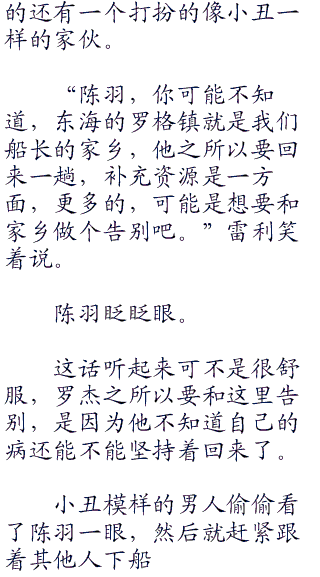 的还有一个打扮的像小丑一
样的家伙。
“陈羽，你可能不知
道，东海的罗格镇就是我们
船长的家乡，他之所以要回
来一趟，补充资源是一方
面，更多的，可能是想要和
家乡做个告别吧。”雷利笑
着说。
陈羽眨眨眼。
这话听起来可不是很舒
服，罗杰之所以要和这里告
别，是因为他不知道自己的
病还能不能坚持着回来了。
小丑模样的男人偷偷看
了陈羽一眼，然后就赶紧跟
着其他人下船